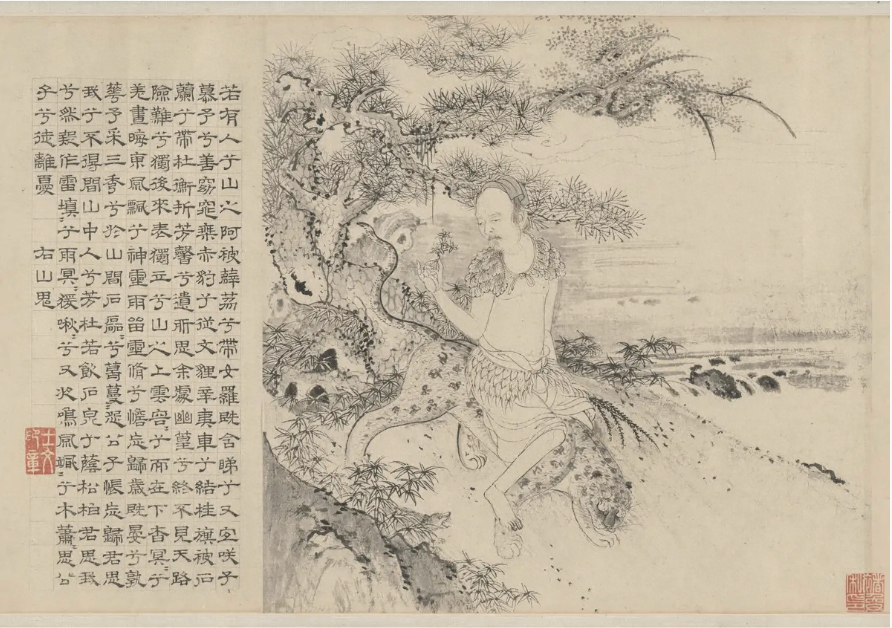 若有人兮山之阿被薜荔兮帶女羅既含睇兮又宜咲子
慕予兮善窈窕乗赤豹兮從文貍辛夷車兮結桂旗被石
蘭兮帶杜衡折芳馨兮遺所思余處幽篁兮終不見天路
險難兮獨後來表獨立兮山之上雲容〻兮而在下杳冥〻兮
羌晝晦東風飄兮神靈雨留靈脩兮憺忘歸歲既晏兮孰
華予采三秀兮於山間石磊〻兮葛蔓〻怨公子悵忘歸君思
我兮不得間山中人兮芳杜若飲石泉兮蔭松柏君思我
兮然疑作雷填〻兮雨冥〻猨啾〻兮又夜鳴風颯〻兮木蕭〻思公
子兮徒離憂 右山鬼